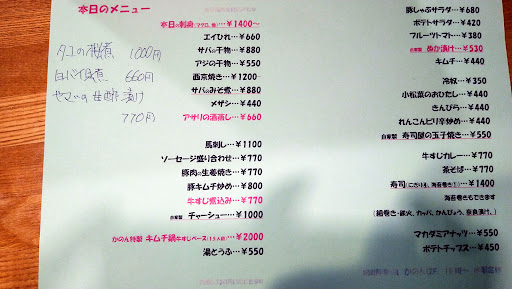 本日のメニュー
タコの桜煮 1000円
白バイ貝煮 660円
ヤマメの甘酢漬け
770円
本日の刺身(マグロ、他)…￥1400～
エイひれ…￥660
サバの干物…￥880
アジの干物…￥550
西京焼き…￥1200
サバのみそ煮…￥880
メザシ…￥440
アサリの酒蒸し…￥660
馬刺し…￥1100
ソーセージ盛り合わせ…￥770
豚肉の生姜焼き…￥770
豚キムチ炒め…￥800
牛すじ煮込み…￥770
自家製 チャーシュー…￥1000
かのん特製 キムチ鍋牛すじベース(1.5人前)…￥2000
湯とうふ…￥550
豚しゃぶサラダ…￥680
ポテトサラダ…￥420
フルーツトマト…￥380
自家製 ぬか漬け…￥530
キムチ…￥440
冷奴…￥350
小松菜のおひたし…￥440
きんぴら…￥440
れんこんピリ辛炒め…￥440
自家製 寿司屋の玉子焼き…￥550
牛すじカレー…￥770
茶そば…￥770
寿司(にぎり8、海苔巻き1)…￥1400
海苔巻きもできます
(細巻き・鉄火、カッパ、かんぴょう、奈良漬け。)
マカダミアナッツ…￥550
ポテトチップス…￥450